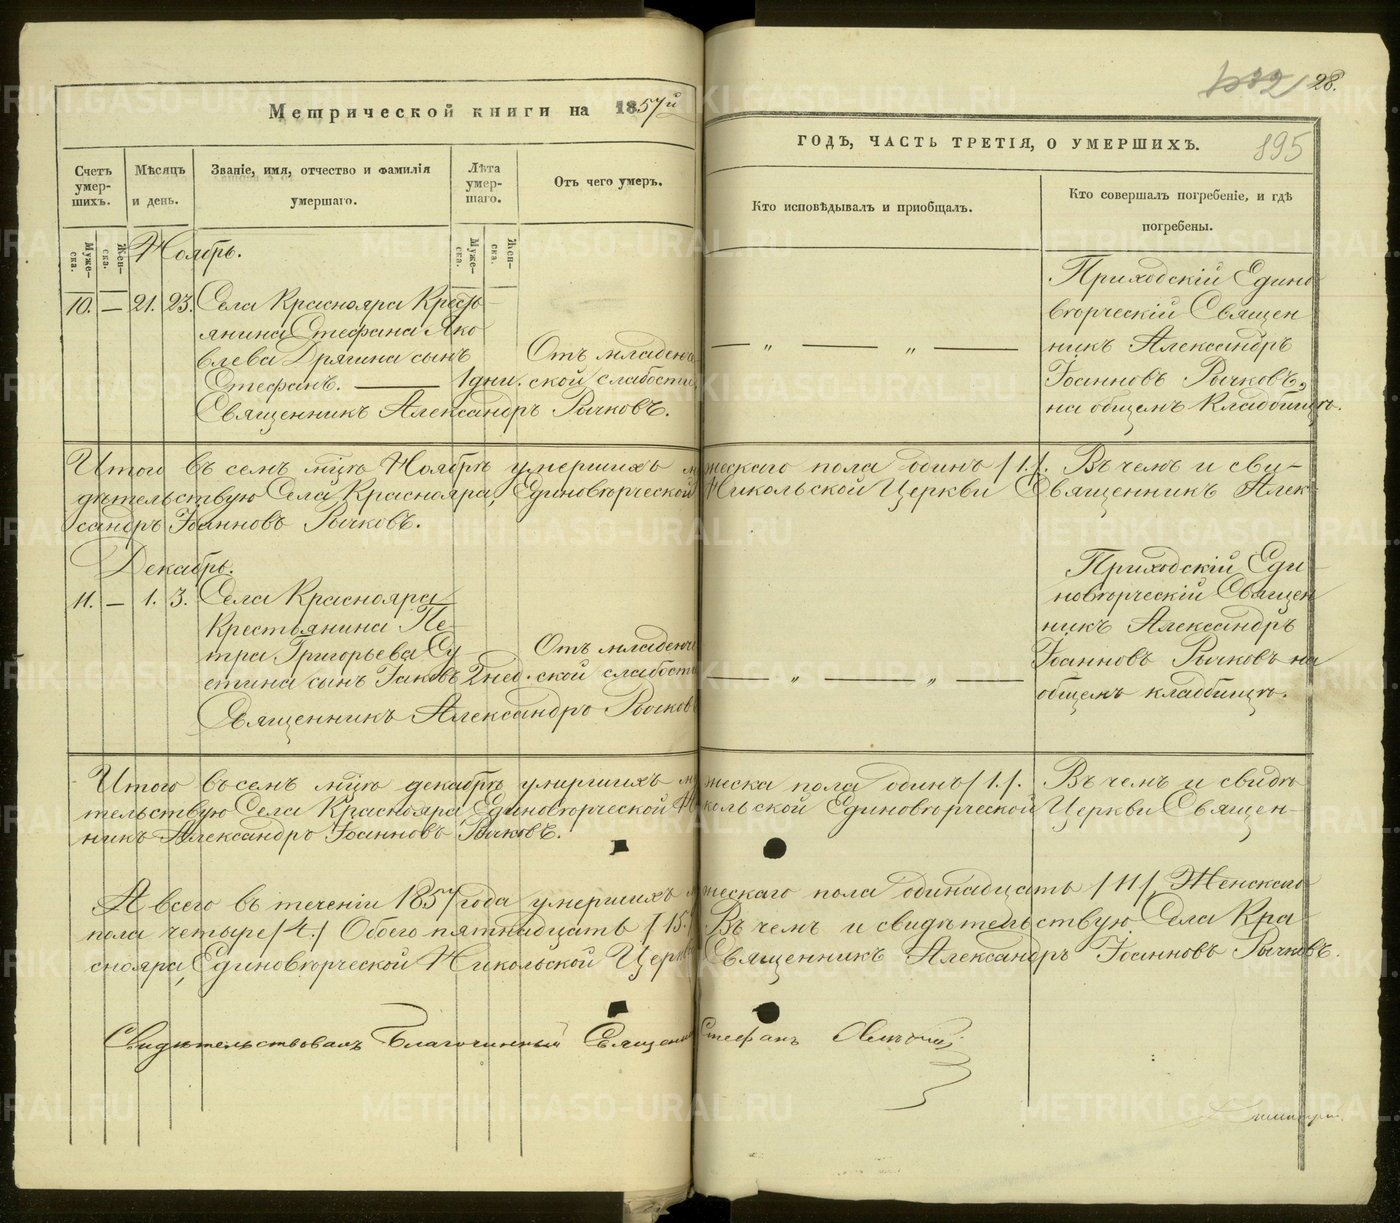 Метрической книги на 1857й
ГОДЪ, ЧАСТЬ ТРЕТІЯ, О УМЕРШИХЪ.
28.
895
Счетъ умер-шихъ.
Муже-ска.
Жен-ска.
Мѣсяцъ и день.
Званіе, имя, отчество и фамилія
умершаго.
Лѣта умер-шаго.
Муже-ска.
Жен-ска.
Отъ чего умеръ.
Кто исповѣдывалъ и пріобщалъ.
Кто совершалъ погребеніе, и гдѣ
погребены.
Ноябрь.
10. — 21. 23. Села Краснояра Кресть-
янина Стефана Яко
влева Дрягина сынъ
Стефанъ. — 1 дни.
Отъ младенче
ской слабости
— „ — „ —
Приходскій Едино
вѣрческій Священ
никъ Александръ
Іоанновъ Рычковъ,
на общемъ Кладбищѣ.
Священникъ Александръ Рычковъ.
Итого въ семъ мцѣ Ноябрѣ умершихъ мужескаго пола одинъ /1./. Въ чемъ и сви-
дѣтельствую Села Краснояра, Единовѣрческой Никольской Церкви Священникъ Алек-
сандръ Іоанновъ Рычковъ.
Декабрь.
11. — 1. 3. Села Краснояра
Крестьянина Пе-
тра Григорьева Су-
етина сынъ Іаковъ 2 нед.
Отъ младенче
ской слабости
— „ — „ —
Приходскій Еди-
новѣрческій Священ
никъ Александръ
Іоанновъ Рычковъ на
общемъ кладбищѣ.
Священникъ Александръ Рычковъ
Итого въ семъ мцѣ декабрѣ умершихъ мужеска пола одинъ /1./. Въ чемъ и свидѣ
тельствую Села Краснояра Единовѣрческой Никольской Единовѣрческой Церкви Священ-
никъ Александръ Іоанновъ Рычковъ.
А всего въ теченіи 1857 года умершихъ мужескаго пола одинадцать /11/, Женскаго
пола четыре /4./ Обоего пятнадцать /15./ Въ чемъ и свидѣтельствую Села Кра-
снояра, Единовѣрческой Никольской Церкви Священникъ Александръ Іоанновъ Рычковъ.
Свидѣтельствовалъ Благочинный Священникъ Стефанъ
METRIKI.GASO-URAL.RU